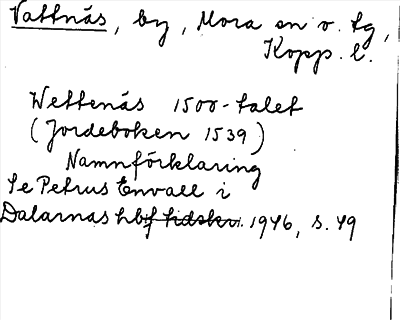 Vattnäs, by, Mora sn o. tg,
Kopp. l.
Wettenäs 1500-talet
(Jordeboken 1539)
Namnförklaring
Se Petrus Envall i
Dalarnas hbf tidskr. 1946, s. 49